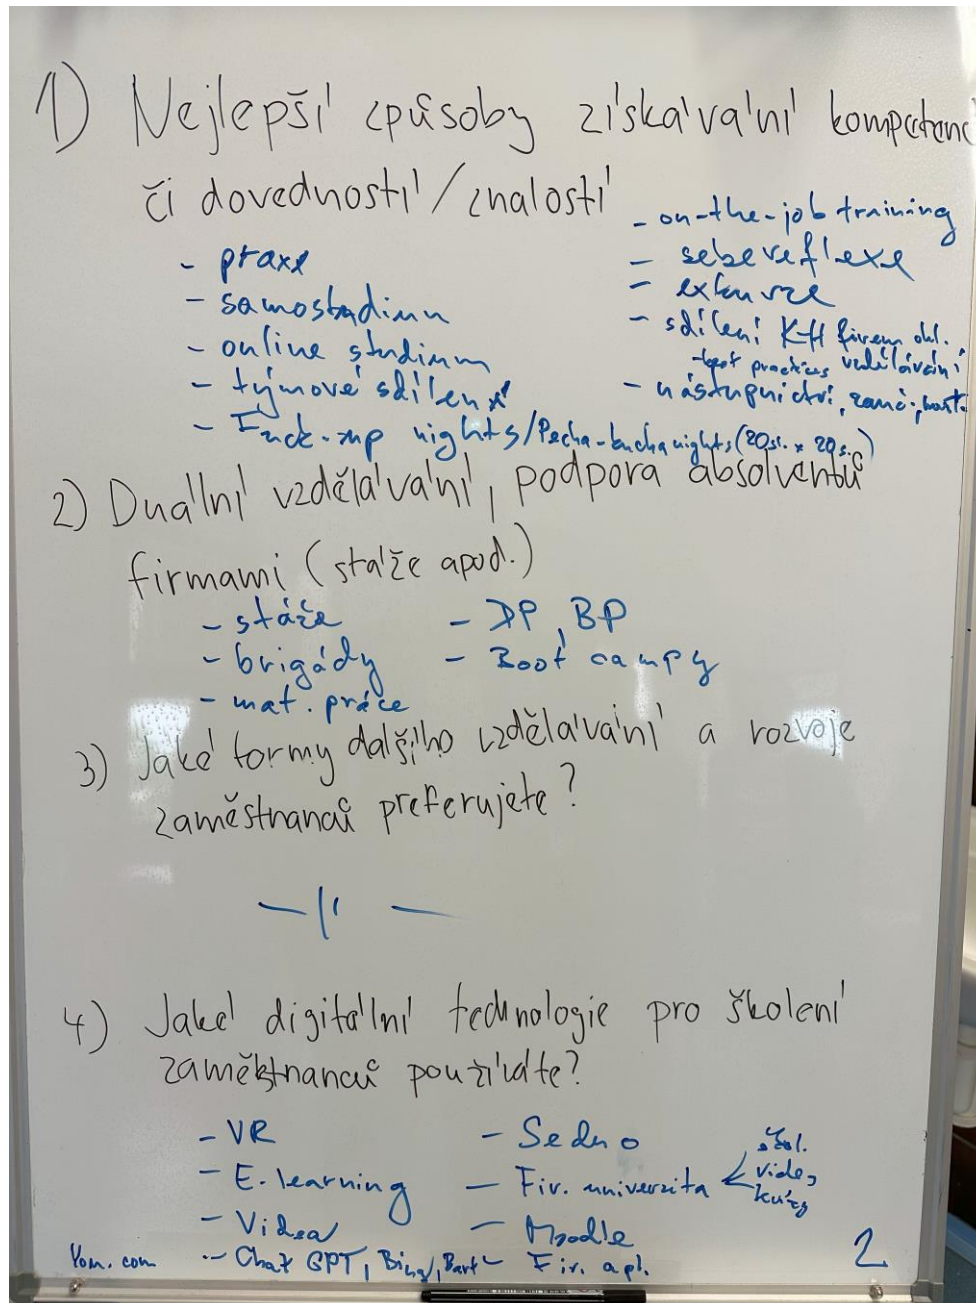 1) Nejlepší způsoby získávání kompetenc
či dovedností/znalostí
- praxe
- samostudium
- online studium
- týmové sdílení
- Fuck-up nights/Pecha-kucha nights (20sl. x 20s.)
- on-the-job training
- sebereflexe
- exkurze
- sdílení K-H firem obl.
best practices vzdělávání
- nástupnictví,
2) Duální vzdělávání, podpora absolventů
firmami (stáže apod.)
- stáže
- brigády
- mat. práce
- DP, BP
- Boot campy
3) Jaké formy dalšího vzdělávání a rozvoje
zaměstnanců preferujete?
—//—
4) Jaké digitální technologie pro školení
zaměstnanců používáte?
- VR
- E-learning
- Videa
- Chat GPT, Bing, Bart
- Seduo
- Fir. univerzita < škol.
videa
kurzy
- Moodle
- Fir. apl.
.com
2